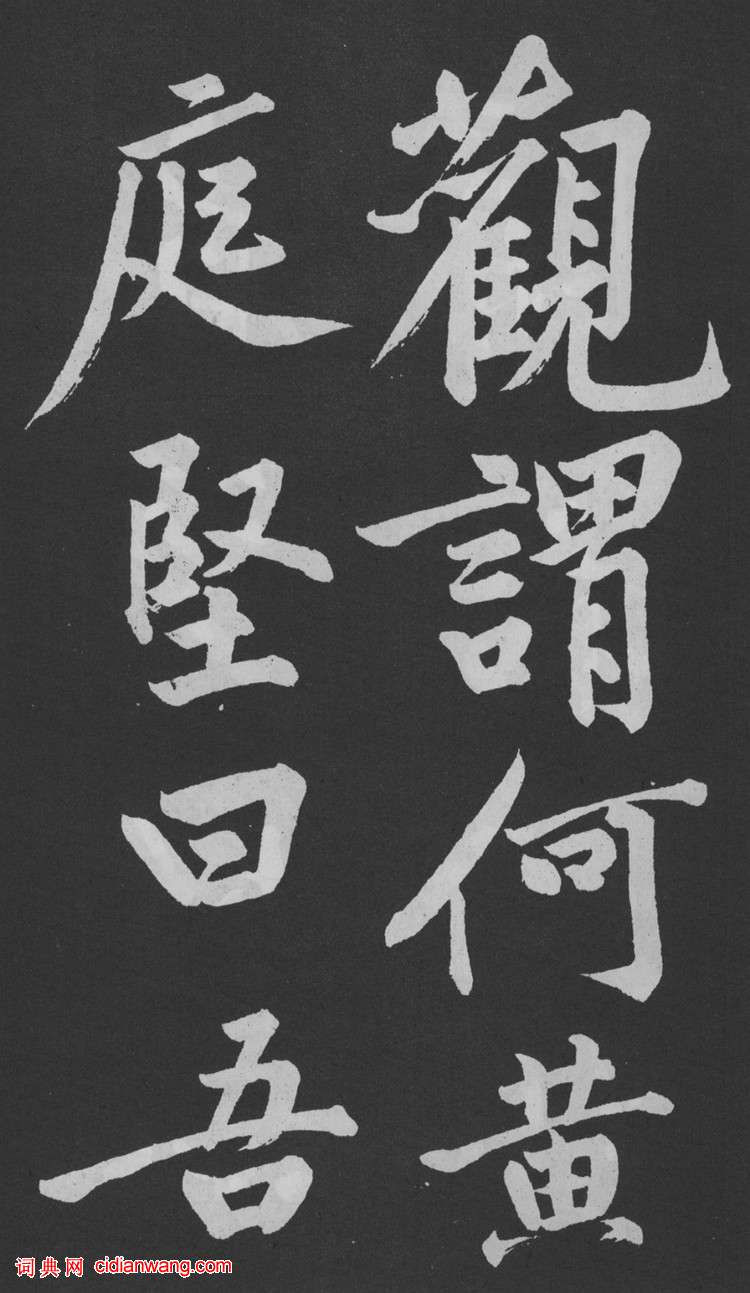 觀謂何黄
庭堅曰吾
词典网 cidianwang.com